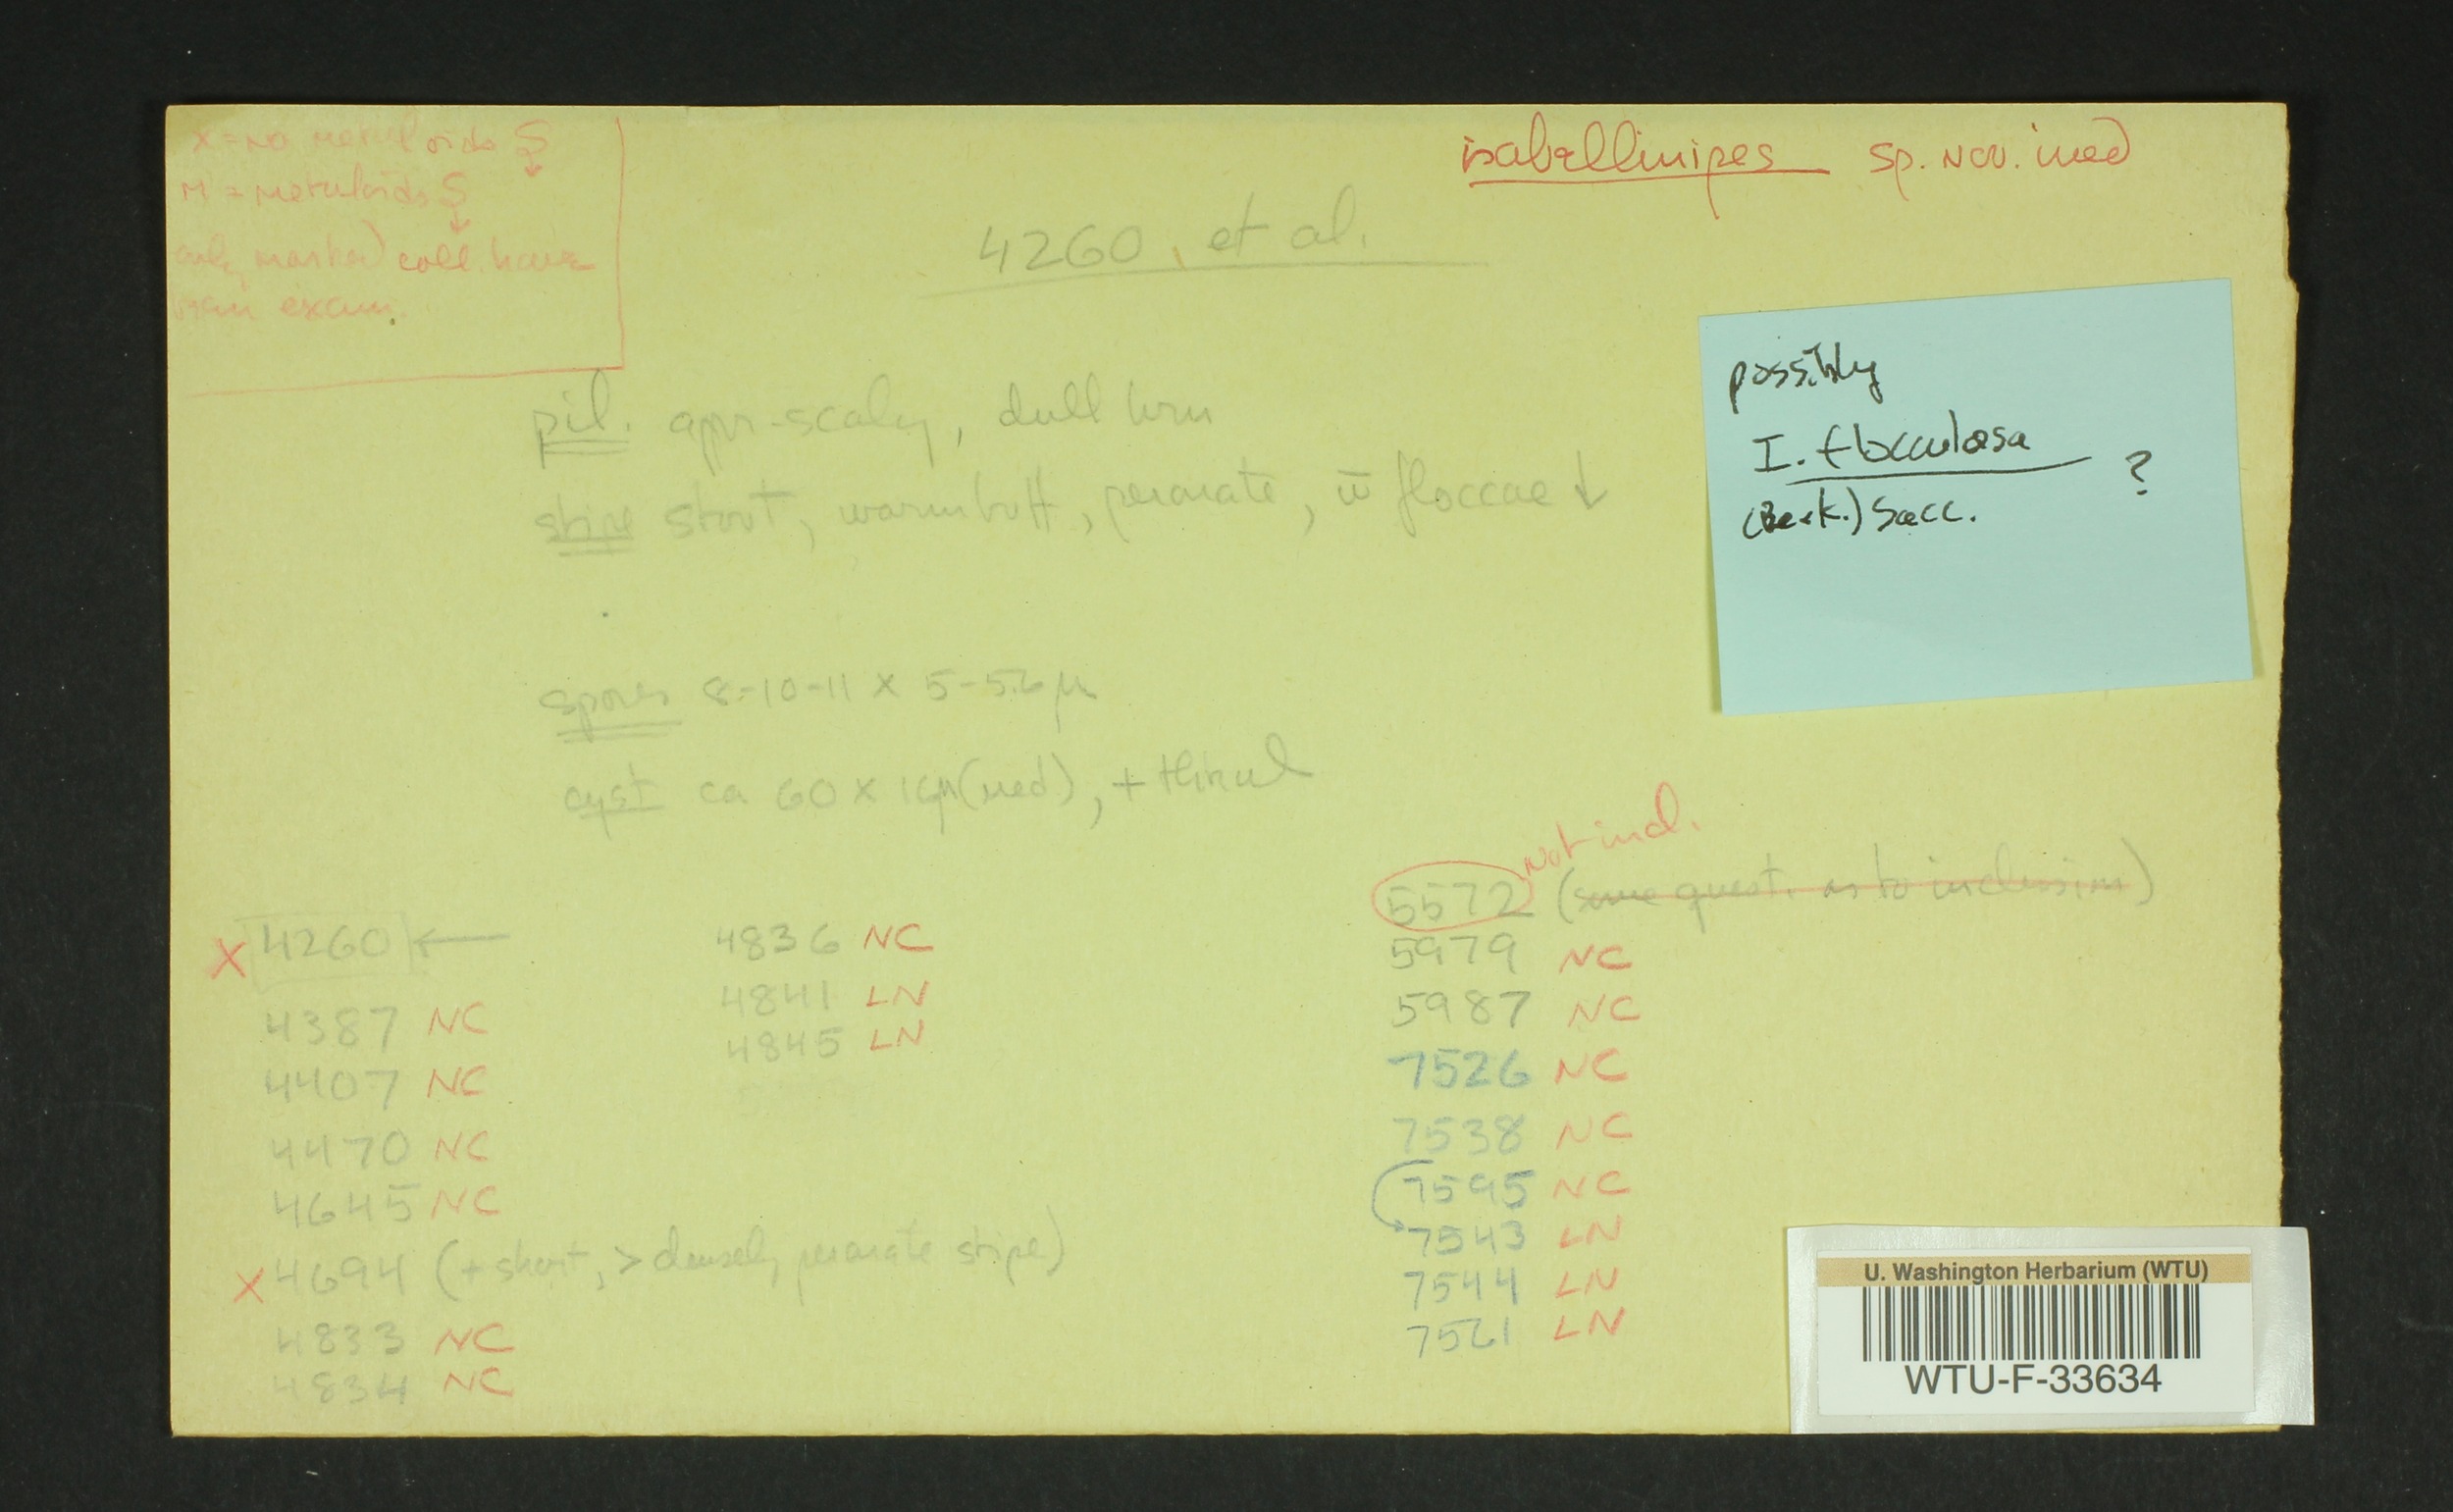 X = no metuloids S ↓
M = metuloids S ↓
only marked coll. have
been exam.
isabellinipes sp. nov. ined
4260, et al.
possibly
I. flocculosa ?
(Berk.) Sacc.
pil. appr-scaly, dull brn
stipe stout, warm buff, peronate, w̄ floccae ↓
spores 8-10-11 x 5-5.6 µ
cyst ca 60 x 16µ (med), + thinwl
X 4260 ←
4387 NC
4407 NC
4470 NC
4645 NC
X 4694 (+ short, > densely peronate stipe)
4833 NC
4834 NC
4836 NC
4841 LN
4845 LN
5572 not incl. (some quest. as to inclusion)
5979 NC
5987 NC
7526 NC
7538 NC
7595 NC
7543 LN
7544 LN
7561 LN
U. Washington Herbarium (WTU)
WTU-F-33634